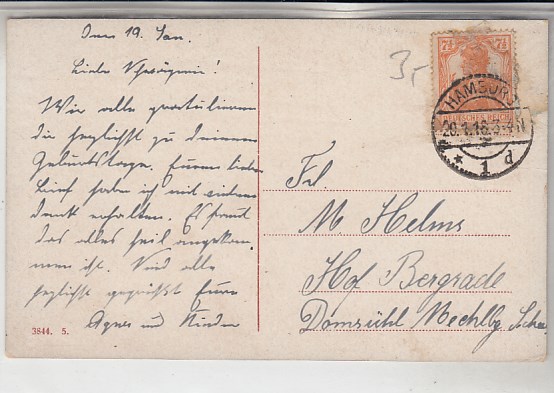 den 19. Jan.
Liebe Schwägerin!
Wir alle gratulieren
dir herzlichst zu deinem
Geburtstage. Euren lieben
Brief habe ich mit vielem
dank erhalten. Es freut
das alles heil angekom
men ist. Seid alle
herzlichst gegrüßt Eure
Agnes und Kinder
3844. 5.
3,-
7½ 7½
DEUTSCHES REICH
HAMBURG
20.1.18. N
* 1 d
Frl
M Helms
Hof Bergrade
Domsühl Mechlbg